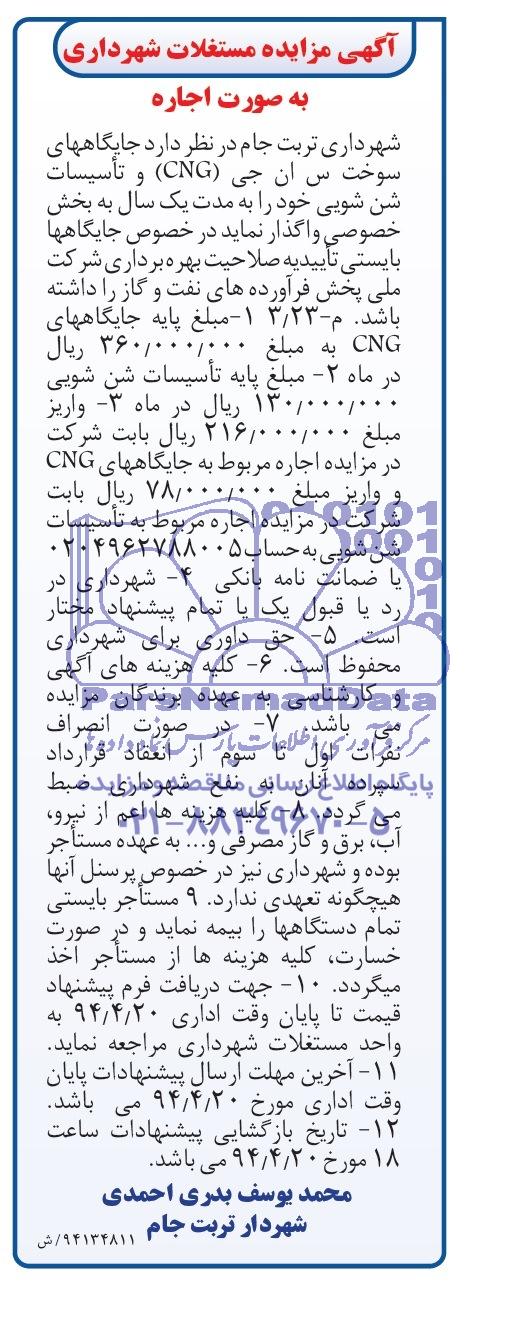 آگهی مزایده مستغلات شهرداری
به صورت اجاره
شهرداری تربت جام در نظر دارد جایگاههای
سوخت س ان جی (CNG) و تأسیسات
شن شویی خود را به مدت یک سال به بخش
خصوصی واگذار نماید در خصوص جایگاهها
بایستی تأییدیه صلاحیت بهره برداری شرکت
ملی پخش فرآورده های نفت و گاز را داشته
باشد. م-۳/۲۳ ۱-مبلغ پایه جایگاههای
CNG به مبلغ ۳۶۰/۰۰۰/۰۰۰ ریال
در ماه ۲- مبلغ پایه تأسیسات شن شویی
۱۳۰/۰۰۰/۰۰۰ ریال در ماه ۳- واریز
مبلغ ۲۱۶/۰۰۰/۰۰۰ ریال بابت شرکت
در مزایده اجاره مربوط به جایگاههای CNG
و واریز مبلغ ۷۸/۰۰۰/۰۰۰ ریال بابت
شرکت در مزایده اجاره مربوط به تأسیسات
شن شویی به حساب ۰۲۰۴۹۶۲۷۸۸۰۰۵
یا ضمانت نامه بانکی ۴- شهرداری در
رد یا قبول یک یا تمام پیشنهاد مختار
است. ۵- حق داوری برای شهرداری
محفوظ است. ۶- کلیه هزینه های آگهی
و کارشناسی به عهده برندگان مزایده
می باشد. ۷- در صورت انصراف
نفرات اول تا سوم از انعقاد قرارداد
سپرده آنان به نفع شهرداری ضبط
می گردد. ۸- کلیه هزینه ها اعم از نیرو،
آب، برق و گاز مصرفی و... به عهده مستأجر
بوده و شهرداری نیز در خصوص پرسنل آنها
هیچگونه تعهدی ندارد. ۹ مستأجر بایستی
تمام دستگاهها را بیمه نماید و در صورت
خسارت، کلیه هزینه ها از مستأجر اخذ
میگردد. ۱۰- جهت دریافت فرم پیشنهاد
قیمت تا پایان وقت اداری ۹۴/۴/۲۰ به
واحد مستغلات شهرداری مراجعه نماید.
۱۱- آخرین مهلت ارسال پیشنهادات پایان
وقت اداری مورخ ۹۴/۴/۲۰ می باشد.
۱۲- تاریخ بازگشایی پیشنهادات ساعت
۱۸ مورخ ۹۴/۴/۲۰ می باشد.
محمد یوسف بدری احمدی
شهردار تربت جام
۹۴۱۳۴۸۱۱/ش
ParsNamadData
پایگاه اطلاع رسانی مناقصه و مزایده
۰۲۱-۸۸۳۴۹۶۷۰-۵